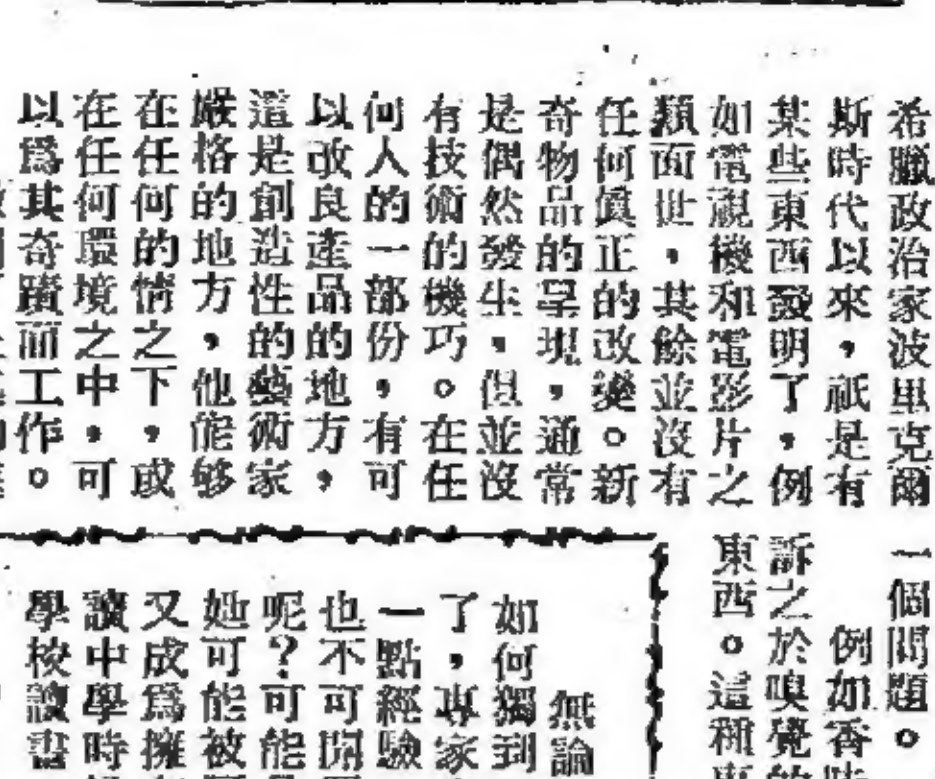 希臘政治家波里克爾
斯時代以來，祇是有
某些東西發明了，例
如電視機和電影片之
類面世，其餘並沒有
任何眞正的改變。新
奇物品的呈現，通常
是偶然發生，但並沒
有技術的機巧。在任
何人的一部份，有可
以改良產品的地方，
這是創造性的藝術家
嚴格的地方，他能够
在任何的情之下，或
在任何環境之中，可
以爲其奇蹟而工作。
一個問題。
例如香
訴之於嗅覺
東西。這種
無論
如何獨到
了，專家
一點經驗
也不可
呢？可能
她可能被
又成爲擁
讀中學時
學校讀書